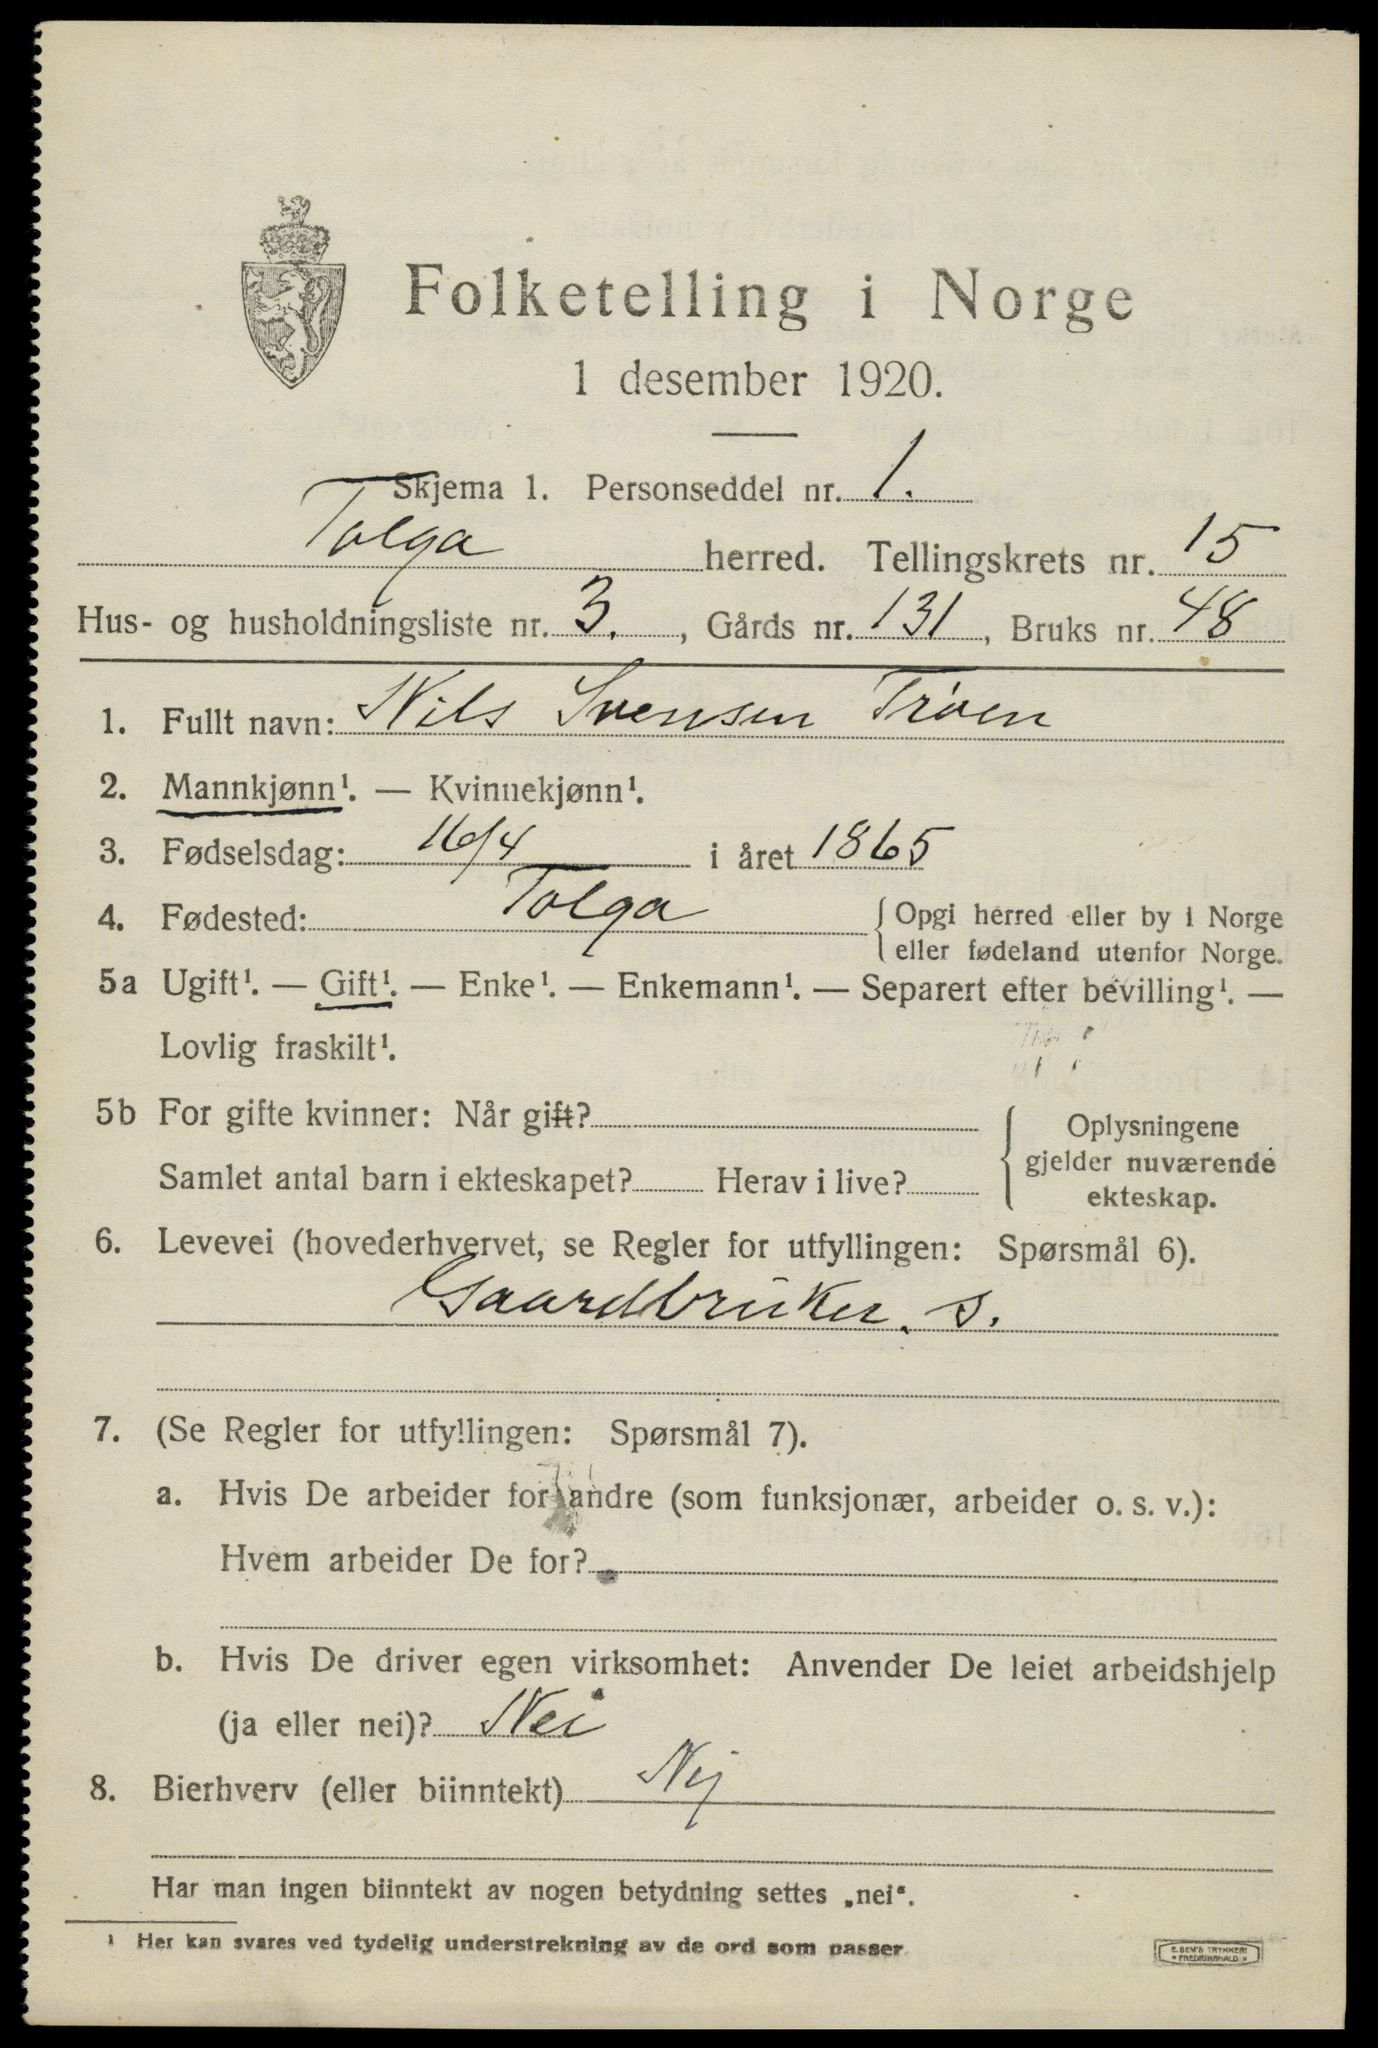 Folketelling i Norge
1 desember 1920.
Skjema 1. Personseddel nr. 1.
Tolga herred. Tellingskrets nr. 15
Hus- og husholdningsliste nr. 3. , Gårds nr. 131 , Bruks nr. 48
1. Fullt navn: Nils Svensen Trøen
2. Mannkjønn¹. — Kvinnekjønn¹.
3. Fødselsdag: 16/4 i året 1865
4. Fødested: Tolga { Opgi herred eller by i Norge
eller fødeland utenfor Norge.
5a Ugift¹. — Gift¹. — Enke¹. — Enkemann¹. — Separert efter bevilling¹. —
Lovlig fraskilt¹.
5b For gifte kvinner: Når gift?
Samlet antal barn i ekteskapet? Herav i live?
Oplysningene
gjelder nuværende
ekteskap.
6. Levevei (hovederhvervet, se Regler for utfyllingen: Spørsmål 6).
Gaardbruker. s.
7. (Se Regler for utfyllingen: Spørsmål 7).
a. Hvis De arbeider for andre (som funksjonær, arbeider o. s. v.):
Hvem arbeider De for?
b. Hvis De driver egen virksomhet: Anvender De leiet arbeidshjelp
(ja eller nei)? Nei
8. Bierhverv (eller biinntekt) Nej
Har man ingen biinntekt av nogen betydning settes „nei“.
¹ Her kan svares ved tydelig understrekning av de ord som passer
E. SEM'S TRYKKERI
FREDRIKSHALD